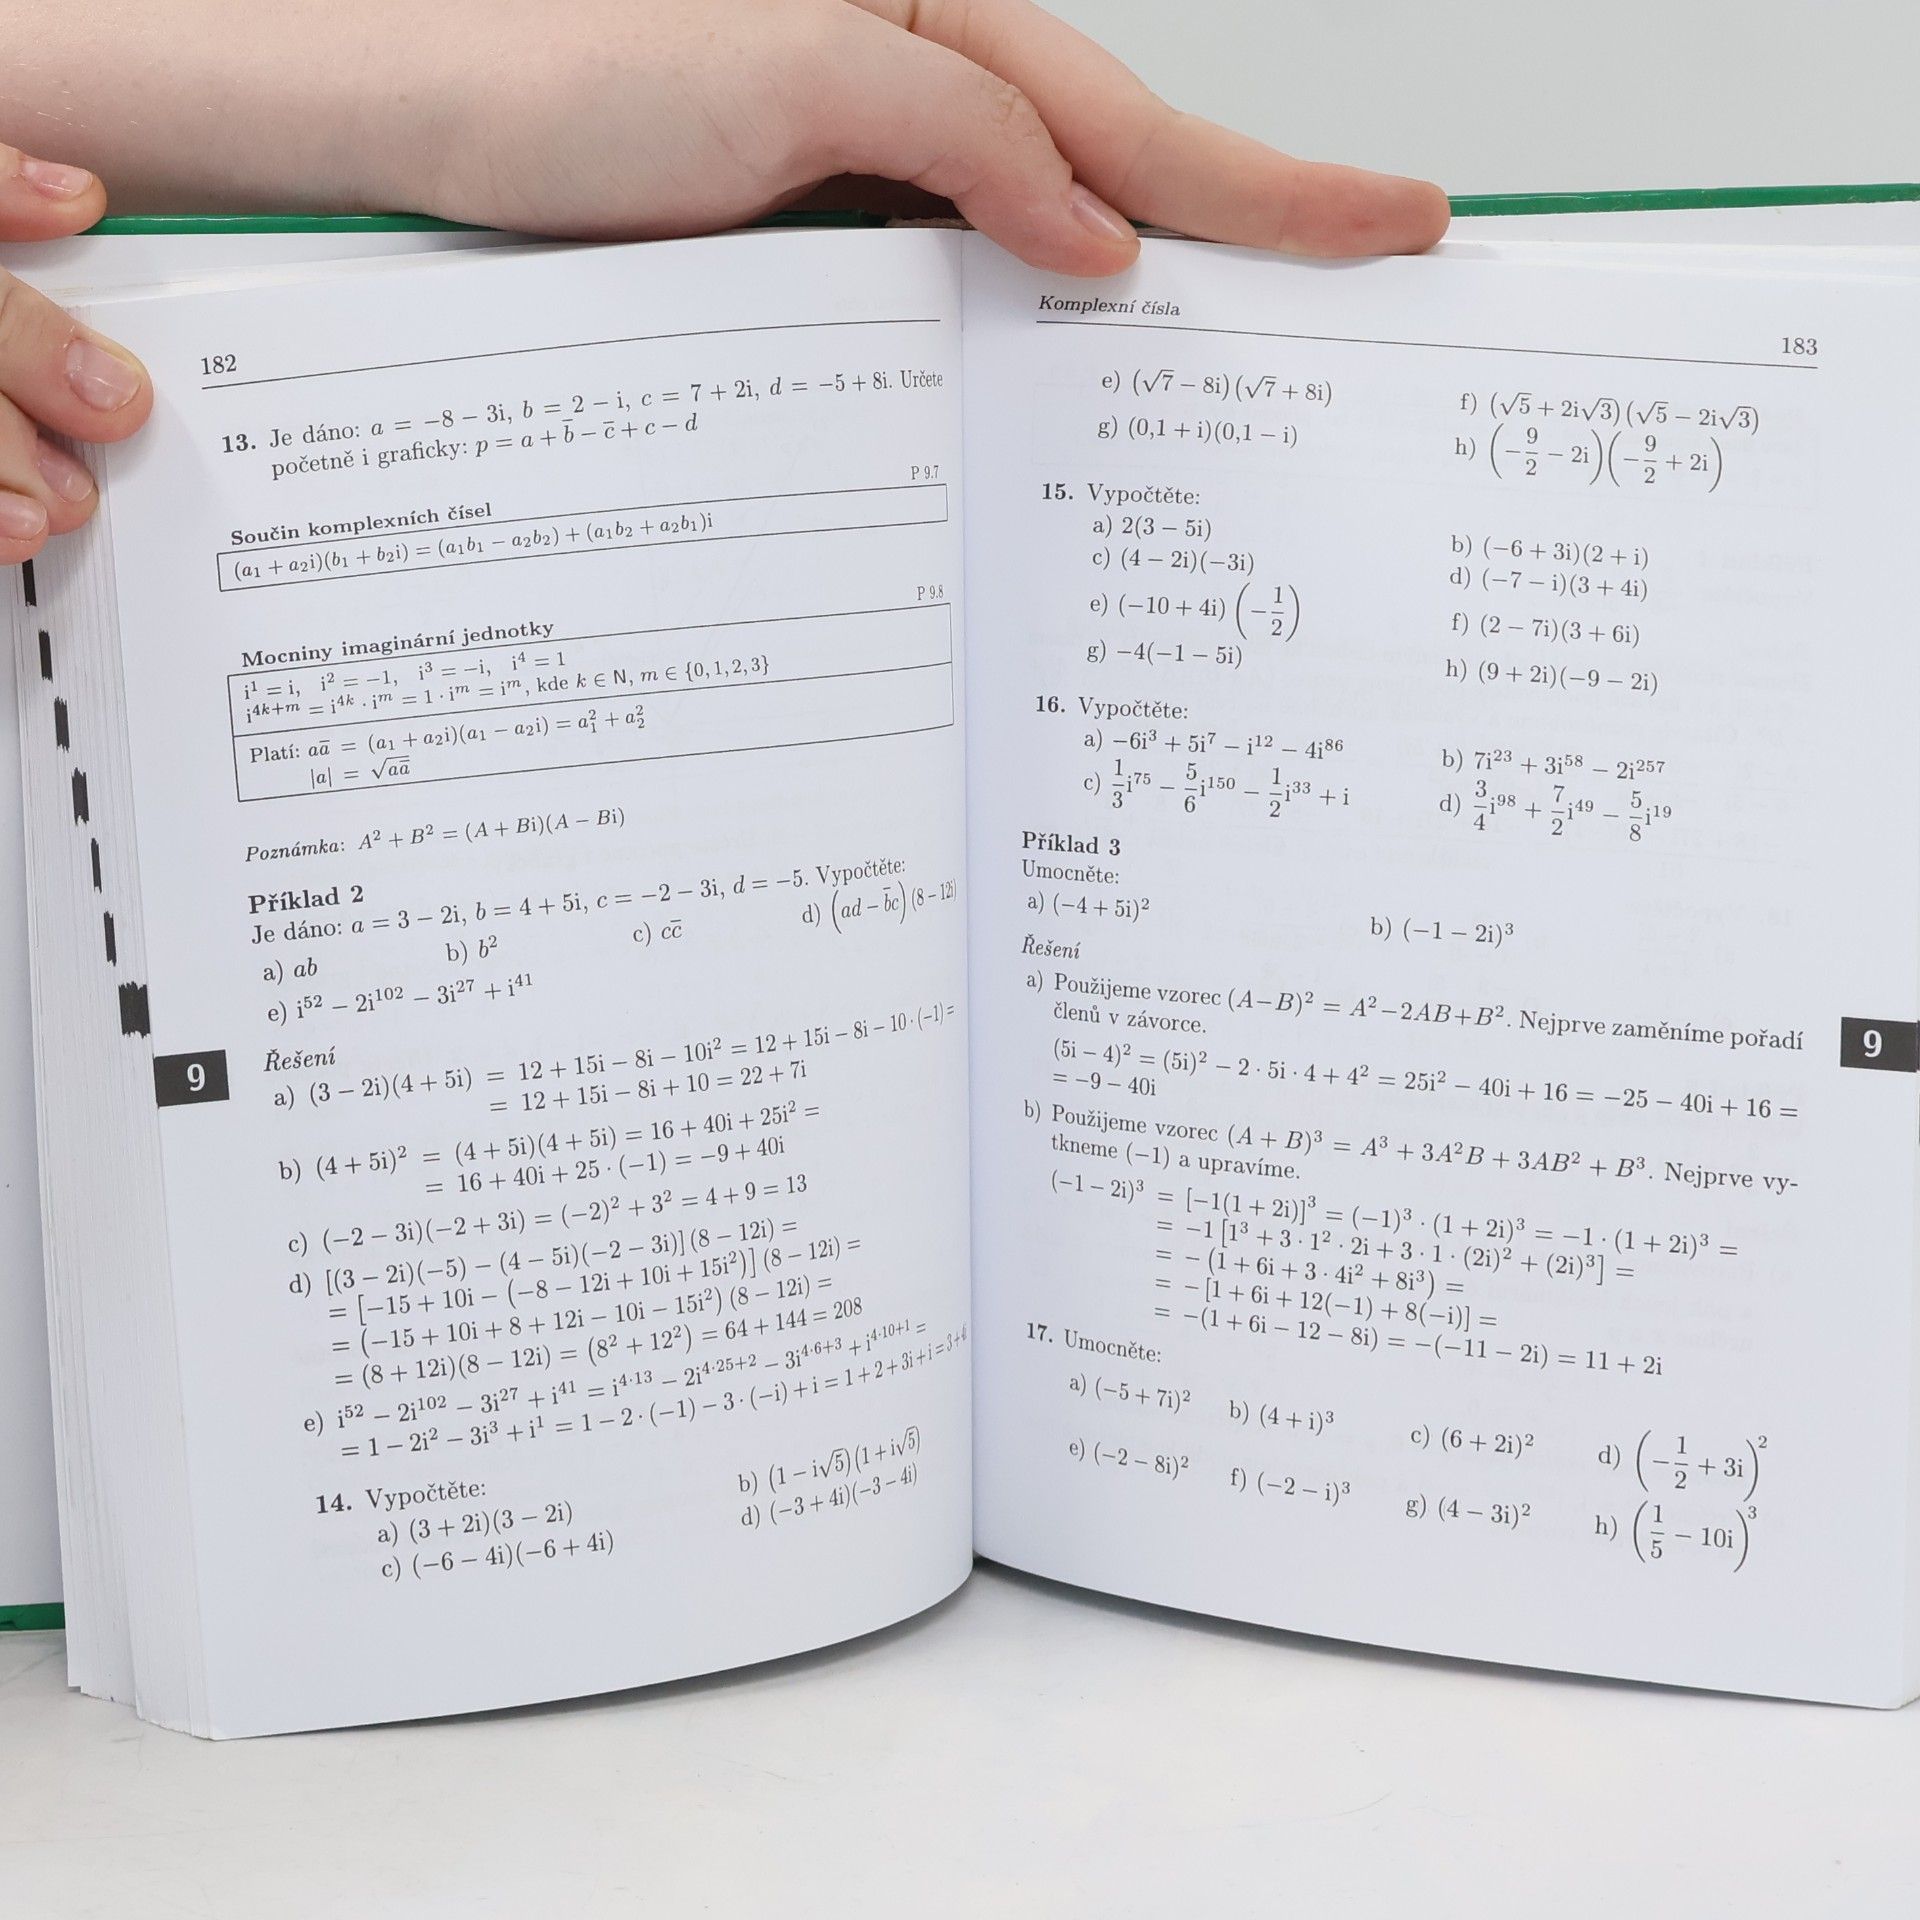 182
13. Je dáno: a = −8 − 3i, b = 2 − i, c = 7 + 2i, d = −5 + 8i. Určete
početně i graficky: p = a + b̄ − c̄ + c − d
P 9.7
Součin komplexních čísel
(a₁ + a₂i)(b₁ + b₂i) = (a₁b₁ − a₂b₂) + (a₁b₂ + a₂b₁)i
P 9.8
Mocniny imaginární jednotky
i¹ = i, i² = −1, i³ = −i, i⁴ = 1
i⁴ᵏ⁺ᵐ = i⁴ᵏ · iᵐ = 1 · iᵐ = iᵐ, kde k ∈ N, m ∈ {0, 1, 2, 3}
Platí: aā = (a₁ + a₂i)(a₁ − a₂i) = a₁² + a₂²
|a| = √(aā)
Poznámka: A² + B² = (A + Bi)(A − Bi)
Příklad 2
Je dáno: a = 3 − 2i, b = 4 + 5i, c = −2 − 3i, d = −5. Vypočtěte:
a) ab b) b² c) cc̄ d) (ad − b̄c)(8 − 12i)
e) i⁵² − 2i¹⁰² − 3i²⁷ + i⁴¹
Řešení
a) (3 − 2i)(4 + 5i) = 12 + 15i − 8i − 10i² = 12 + 15i − 8i − 10 · (−1) =
= 12 + 15i − 8i + 10 = 22 + 7i
b) (4 + 5i)² = (4 + 5i)(4 + 5i) = 16 + 40i + 25i² =
= 16 + 40i + 25 · (−1) = −9 + 40i
c) (−2 − 3i)(−2 + 3i) = (−2)² + 3² = 4 + 9 = 13
d) [(3 − 2i)(−5) − (4 − 5i)(−2 − 3i)] (8 − 12i) =
= [−15 + 10i − (−8 − 12i + 10i + 15i²)] (8 − 12i) =
= (−15 + 10i + 8 + 12i − 10i − 15i²) (8 − 12i) =
= (8 + 12i)(8 − 12i) = (8² + 12²) = 64 + 144 = 208
e) i⁵² − 2i¹⁰² − 3i²⁷ + i⁴¹ = i⁴·¹³ − 2i⁴·²⁵⁺² − 3i⁴·⁶⁺³ + i⁴·¹⁰⁺¹ =
= 1 − 2i² − 3i³ + i¹ = 1 − 2 · (−1) − 3 · (−i) + i = 1 + 2 + 3i + i = 3 + 4
14. Vypočtěte:
a) (3 + 2i)(3 − 2i) b) (1 − i√5)(1 + i√5)
c) (−6 − 4i)(−6 + 4i) d) (−3 + 4i)(−3 − 4i)
9
Komplexní čísla
183
e) (√7 − 8i)(√7 + 8i) f) (√5 + 2i√3)(√5 − 2i√3)
g) (0,1 + i)(0,1 − i) h) (−9/2 − 2i)(−9/2 + 2i)
15. Vypočtěte:
a) 2(3 − 5i) b) (−6 + 3i)(2 + i)
c) (4 − 2i)(−3i) d) (−7 − i)(3 + 4i)
e) (−10 + 4i)(−1/2) f) (2 − 7i)(3 + 6i)
g) −4(−1 − 5i) h) (9 + 2i)(−9 − 2i)
16. Vypočtěte:
a) −6i³ + 5i⁷ − i¹² − 4i⁸⁶ b) 7i²³ + 3i⁵⁸ − 2i²⁵⁷
c) 1/3 i⁷⁵ − 5/6 i¹⁵⁰ − 1/2 i³³ + i d) 3/4 i⁹⁸ + 7/2 i⁴⁹ − 5/8 i¹⁹
Příklad 3
Umocněte:
a) (−4 + 5i)² b) (−1 − 2i)³
Řešení
a) Použijeme vzorec (A − B)² = A² − 2AB + B². Nejprve zaměníme pořadí
členů v závorce.
(5i − 4)² = (5i)² − 2 · 5i · 4 + 4² = 25i² − 40i + 16 = −25 − 40i + 16 =
= −9 − 40i
b) Použijeme vzorec (A + B)³ = A³ + 3A²B + 3AB² + B³. Nejprve vy-
tkneme (−1) a upravíme.
(−1 − 2i)³ = [−1(1 + 2i)]³ = (−1)³ · (1 + 2i)³ = −1 · (1 + 2i)³ =
= −1 [1³ + 3 · 1² · 2i + 3 · 1 · (2i)² + (2i)³] =
= − (1 + 6i + 3 · 4i² + 8i³) =
= − [1 + 6i + 12(−1) + 8(−i)] =
= −(1 + 6i − 12 − 8i) = −(−11 − 2i) = 11 + 2i
17. Umocněte:
a) (−5 + 7i)² b) (4 + i)³ c) (6 + 2i)² d) (−1/2 + 3i)²
e) (−2 − 8i)² f) (−2 − i)³ g) (4 − 3i)² h) (1/5 − 10i)³
9